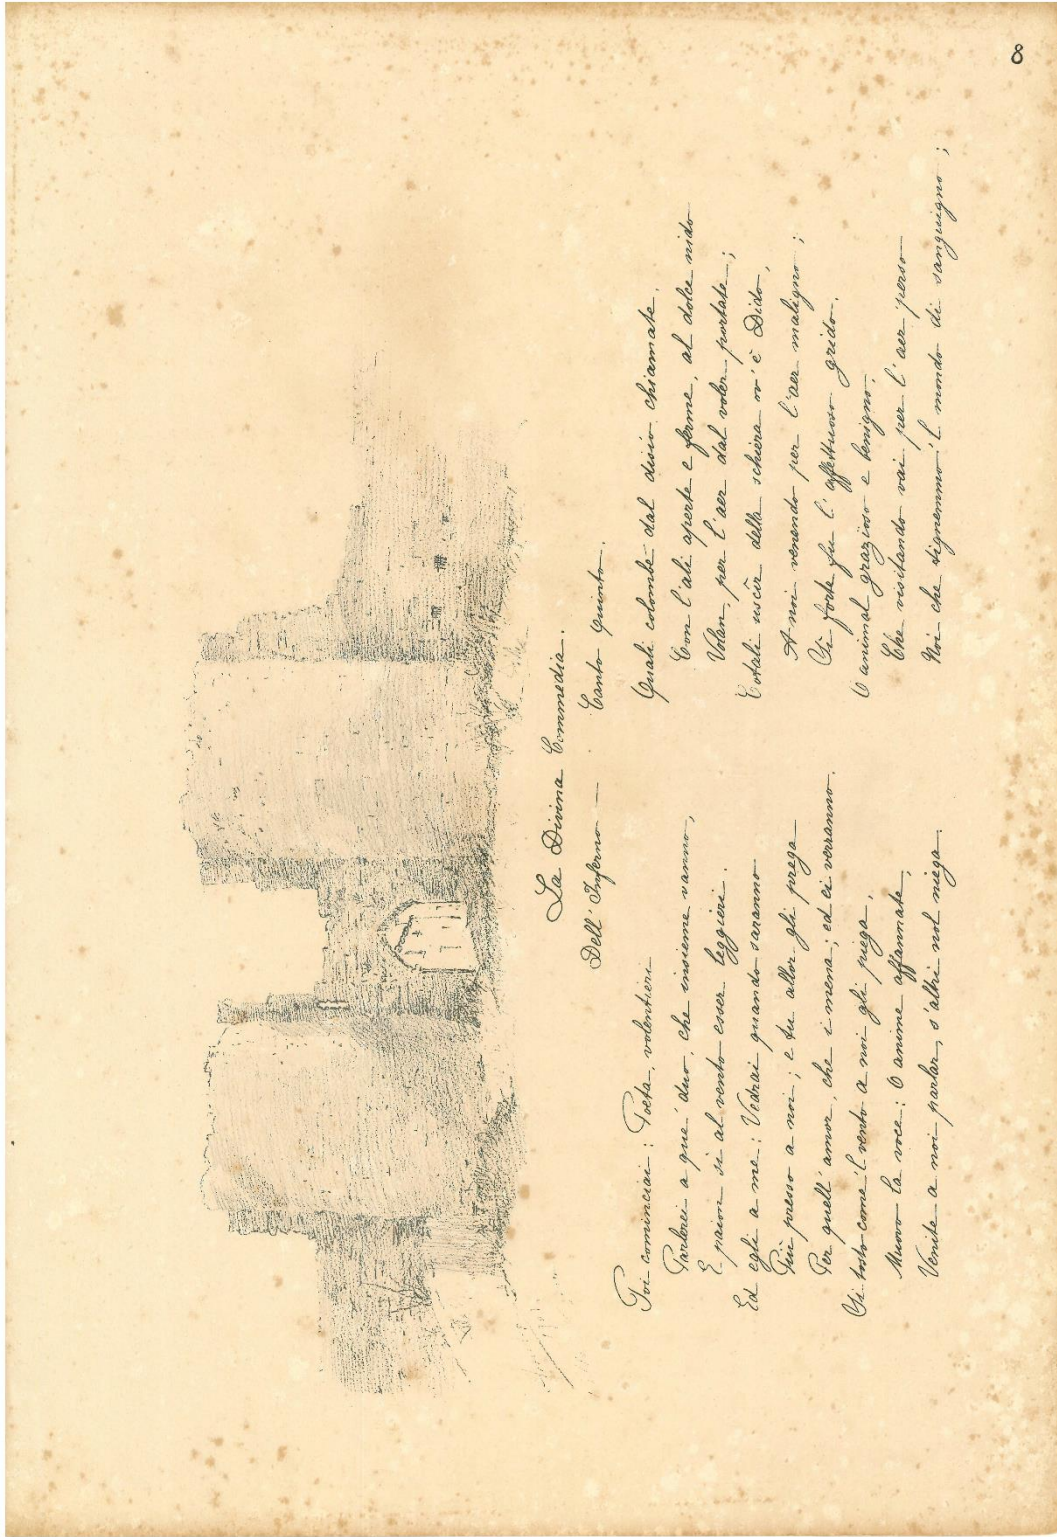 8
La Divina Commedia.
Dell' Inferno — Canto Quinto.
Poi cominciai: Poeta, volentieri
Parlerei a que' duo, che insieme vanno,
E paion sì al vento esser leggieri.
Ed egli a me: Vedrai quando saranno
Più presso a noi; e tu allor gli prega
Per quell' amor, che i mena; ed ei verranno.
Sì tosto come 'l vento a noi gli piega,
Muovo la voce: O anime affannate,
Venite a noi parlar, s'altri nol niega.
Quali colombe dal disio chiamate,
Con l'ali aperte e ferme, al dolce nido
Volan, per l'aer dal voler portate;
Cotali uscîr della schiera ov' è Dido,
A noi venendo per l'aer maligno;
Sì forte fu l' affettuoso grido.
O animal grazioso e benigno,
Che visitando vai per l' aer perso
Noi che tignemmo 'l mondo di sanguigno;